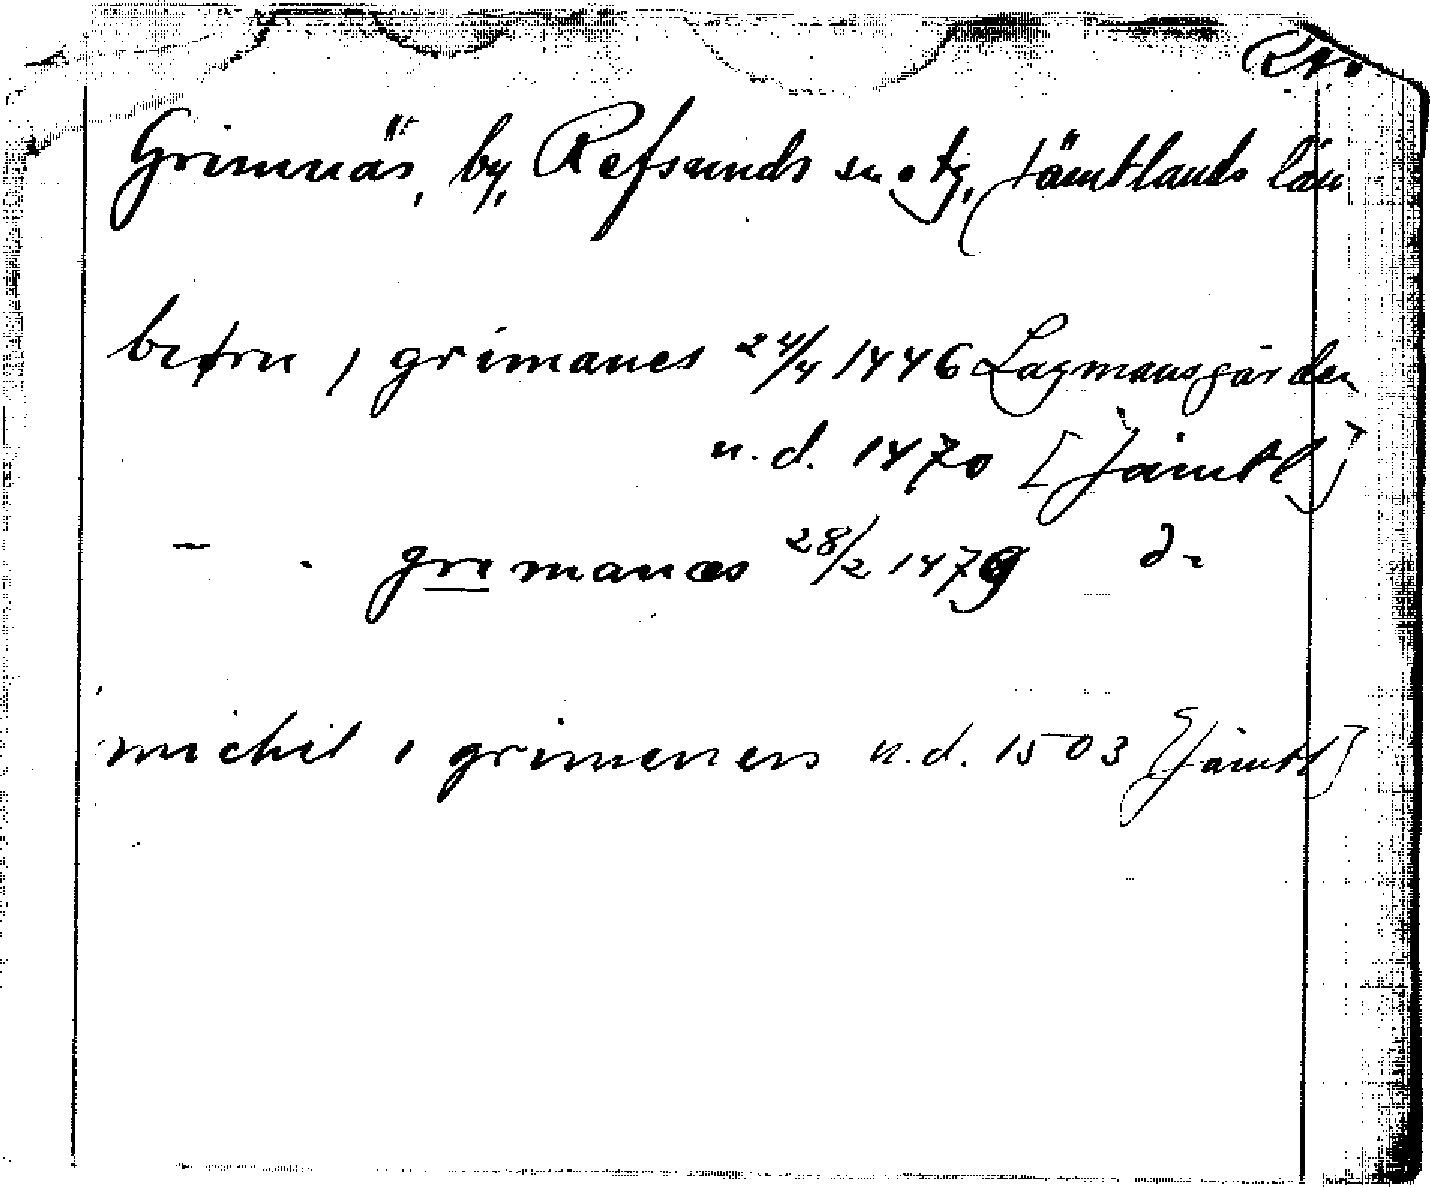 RA.
Grimnäs, by, Refsunds sn o tg, Jämtlands län
biørn i grimanes 24/4 1446 Lagmansgården
u.d. 1470 [Jämtl]
— - grimanæs 28/2 1479 do
michil i grimenens u.d. 1503 [Jämtl]